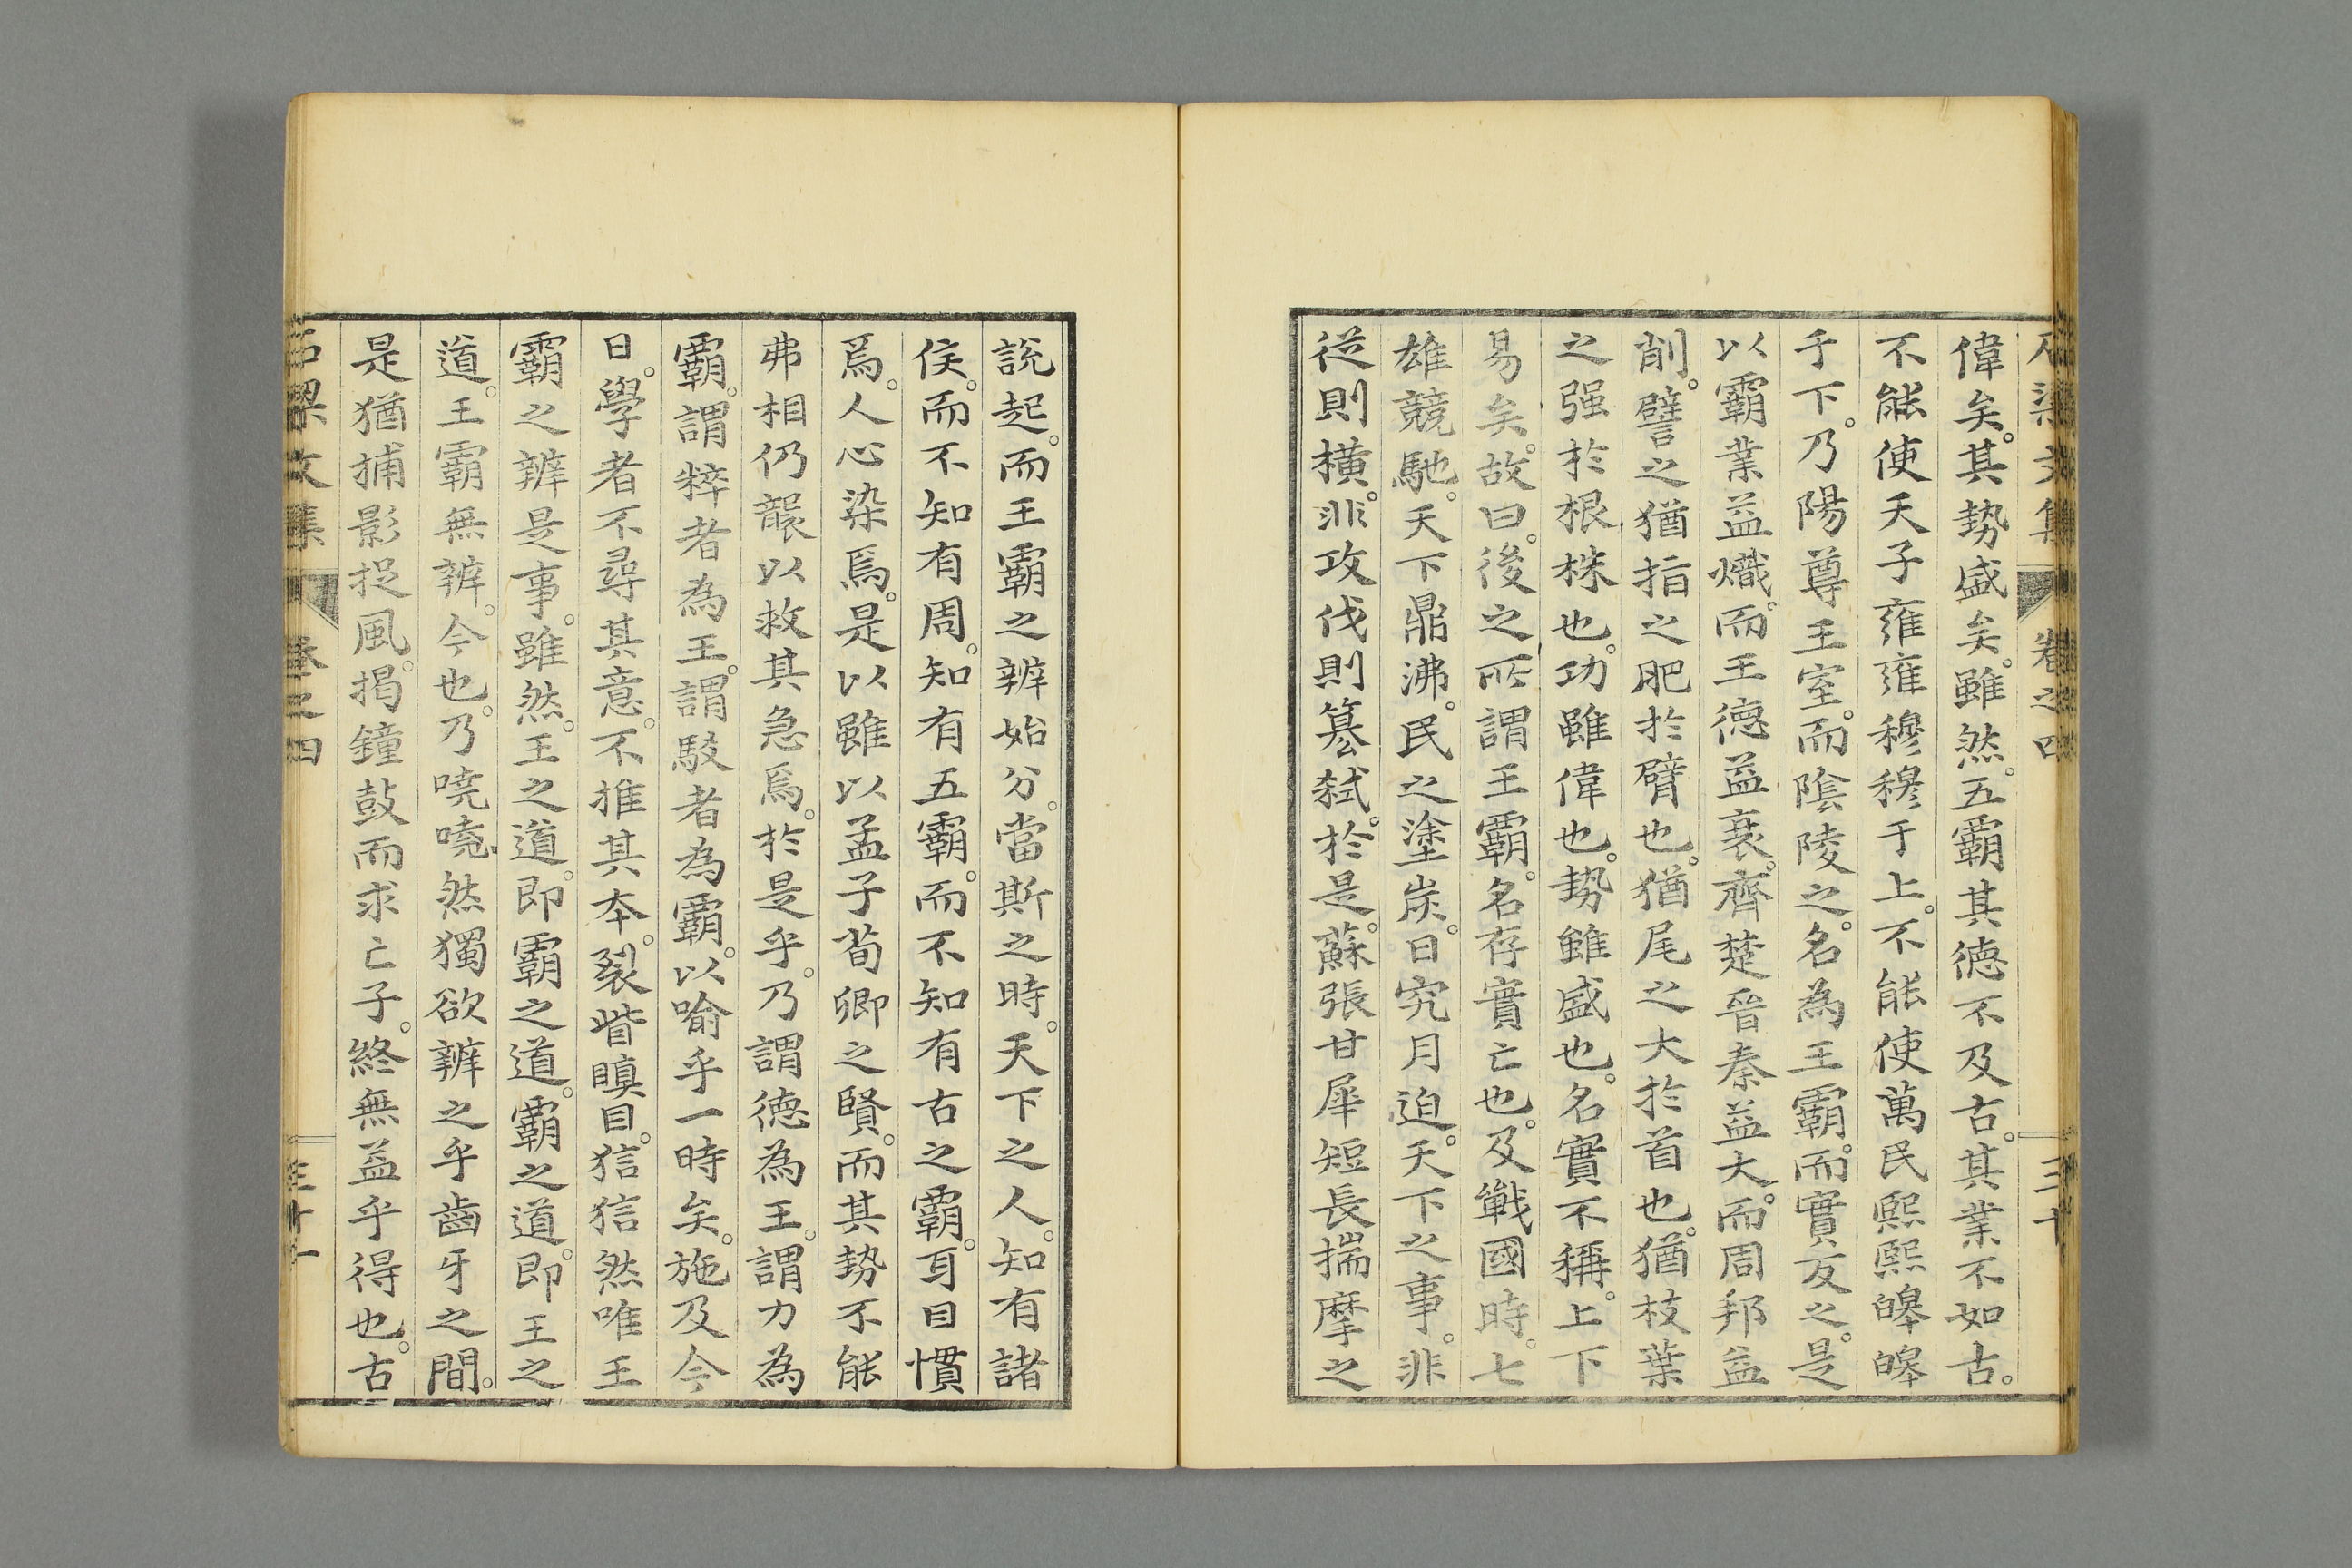 偉矣。其勢盛矣。雖然。五霸其德不及古。其業不如古。
不能使天子雍雍穆穆于上。不能使萬民熙熙皞皞
于下。乃陽尊王室。而陰陵之。名為王霸。而實反之。是
以霸業益熾。而王德益衰。齊楚晉秦益大。而周邦益
削。譬之猶指之肥於臂也。猶尾之大於首也。猶枝葉
之强於根株也。功雖偉也。勢雖盛也。名實不稱。上下
易矣。故曰。後之所謂王霸。名存實亡也。及戰國時。七
雄競馳。天下鼎沸。民之塗炭。日究月迫。天下之事。非
從則橫。非攻伐則簒弑。於是。蘇張甘犀短長揣摩之
說起。而王霸之辨始分。當斯之時。天下之人。知有諸
侯。而不知有周。知有五霸。而不知有古之霸。耳目慣
焉。人心染焉。是以雖以孟子荀卿之賢。而其勢不能
弗相仍襲以救其急焉。於是乎。乃謂德為王。謂力為
霸。謂粹者為王。謂駁者為霸。以喻乎一時矣。施及今
日。學者不尋其意。不推其本。裂眥瞋目。狺狺然唯王
霸之辨是事。雖然。王之道。即霸之道。霸之道。即王之
道。王霸無辨。今也。乃嘵嘵然獨欲辨之乎齒牙之間。
是猶捕影捉風。揭鐘鼓而求亡子。終無益乎得也。古
石梁文集 卷之四